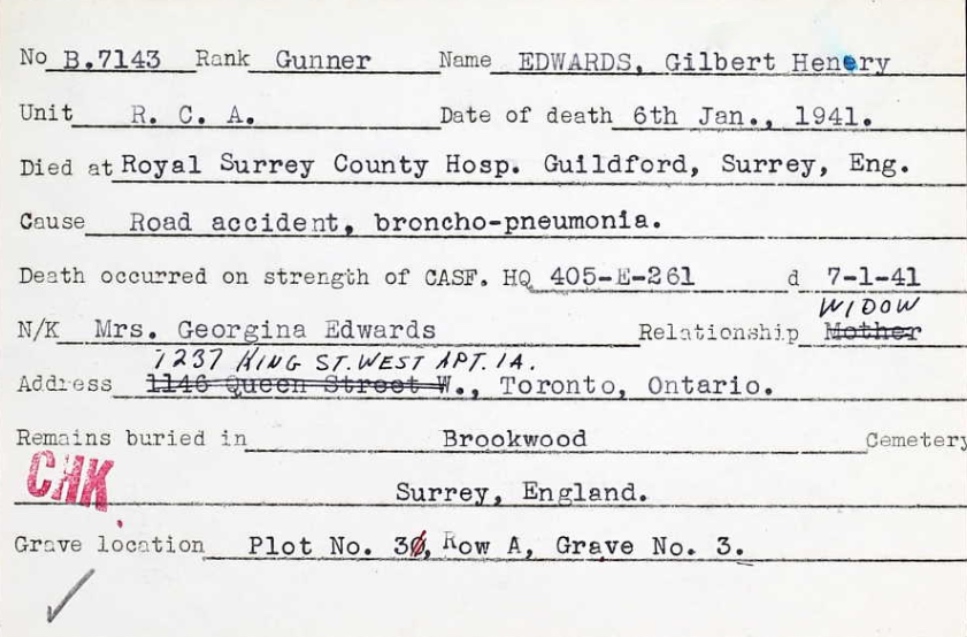 No B.7143 Rank Gunner Name EDWARDS, Gilbert Henery
Unit R. C. A. Date of death 6th Jan., 1941.
Died at Royal Surrey County Hosp. Guildford, Surrey, Eng.
Cause Road accident, broncho-pneumonia.
Death occurred on strength of CASF. HQ 405-E-261 d 7-1-41
WIDOW
N/K Mrs. Georgina Edwards Relationship Mother
1237 KING ST. WEST APT. 1A.
Address 1146 Queen Street W., Toronto, Ontario.
Remains buried in Brookwood Cemetery
CHK
Surrey, England.
Grave location Plot No. 30, Row A, Grave No. 3.